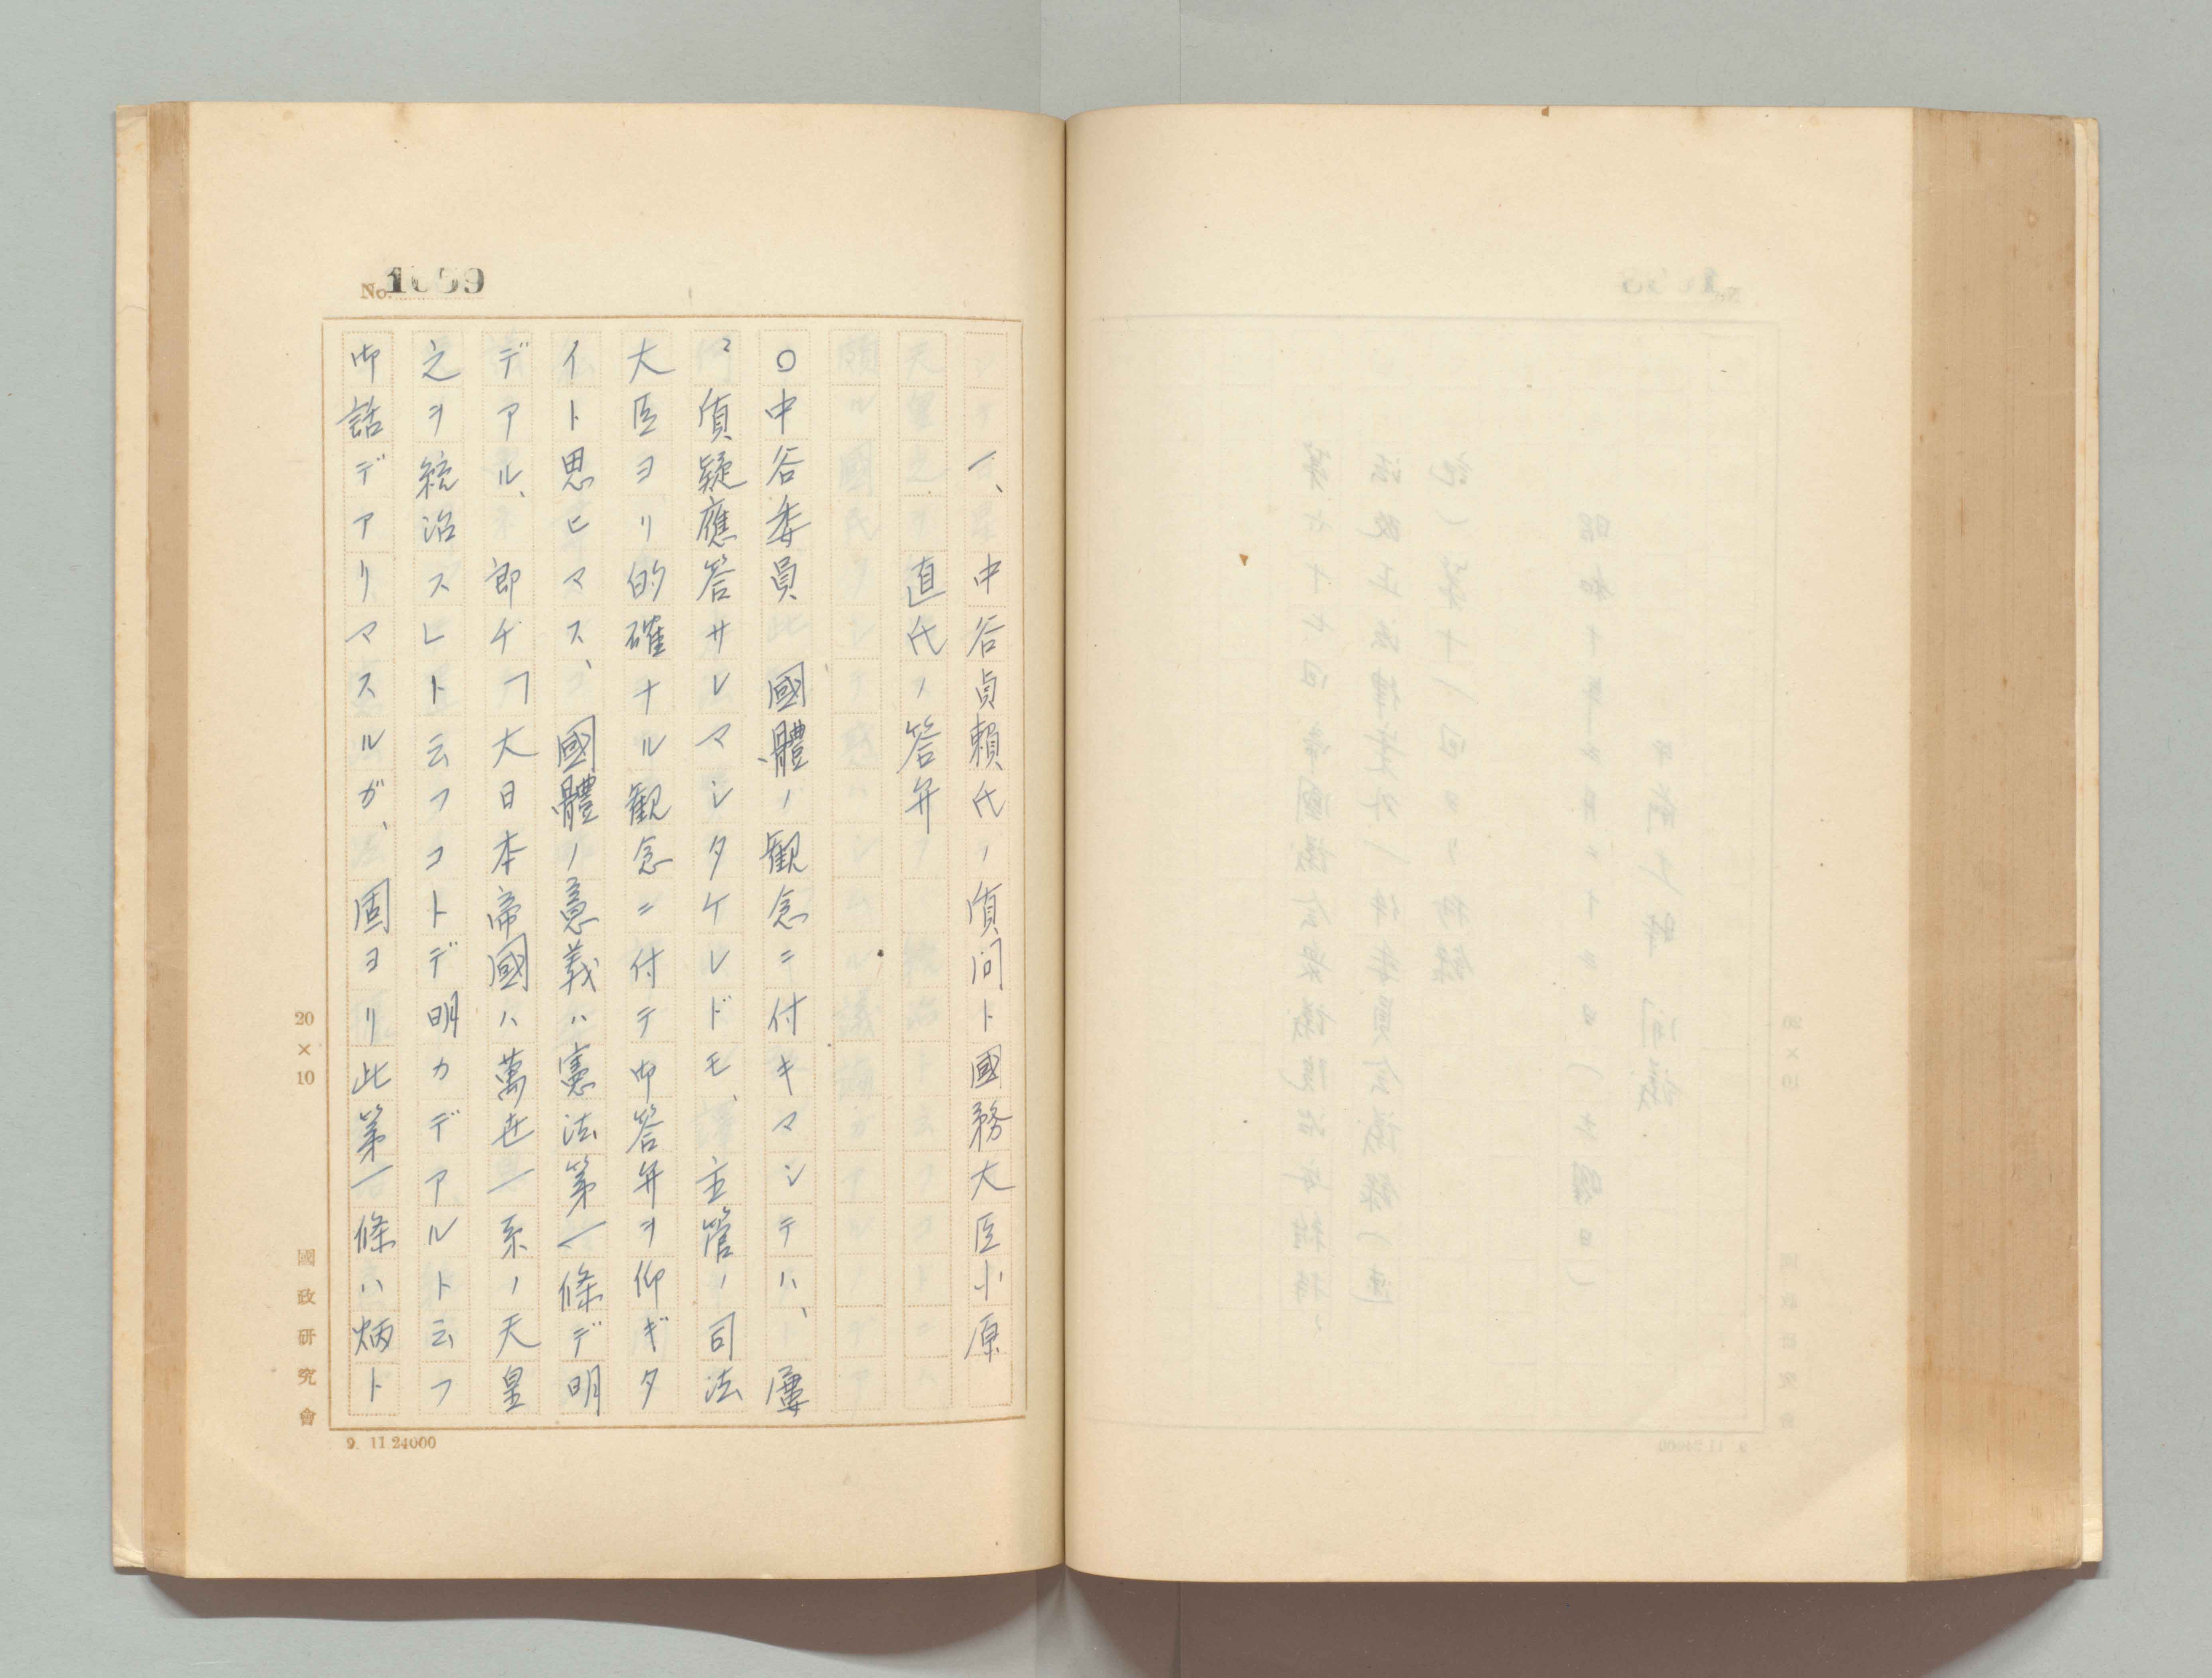 No. 1059
一、中谷貞賴氏ノ質問ト國務大臣小原
直氏ノ答弁
〇中谷委員 國體ノ観念ニ付キマシテハ、屢
〻質疑應答サレマシタケレドモ、主管ノ司法
大臣ヨリ的確ナル観念ニ付テ御答弁ヲ仰ギタ
イト思ヒマス、國體ノ意義ハ憲法第一條デ明
デアル、即チ「大日本帝國ハ萬世一系ノ天皇
之ヲ統治スレト云フコトデ明カデアルト云フ
御話デアリマスルガ、固ヨリ此第一條ハ炳ト
20×10
國政研究會
9. 11.24000